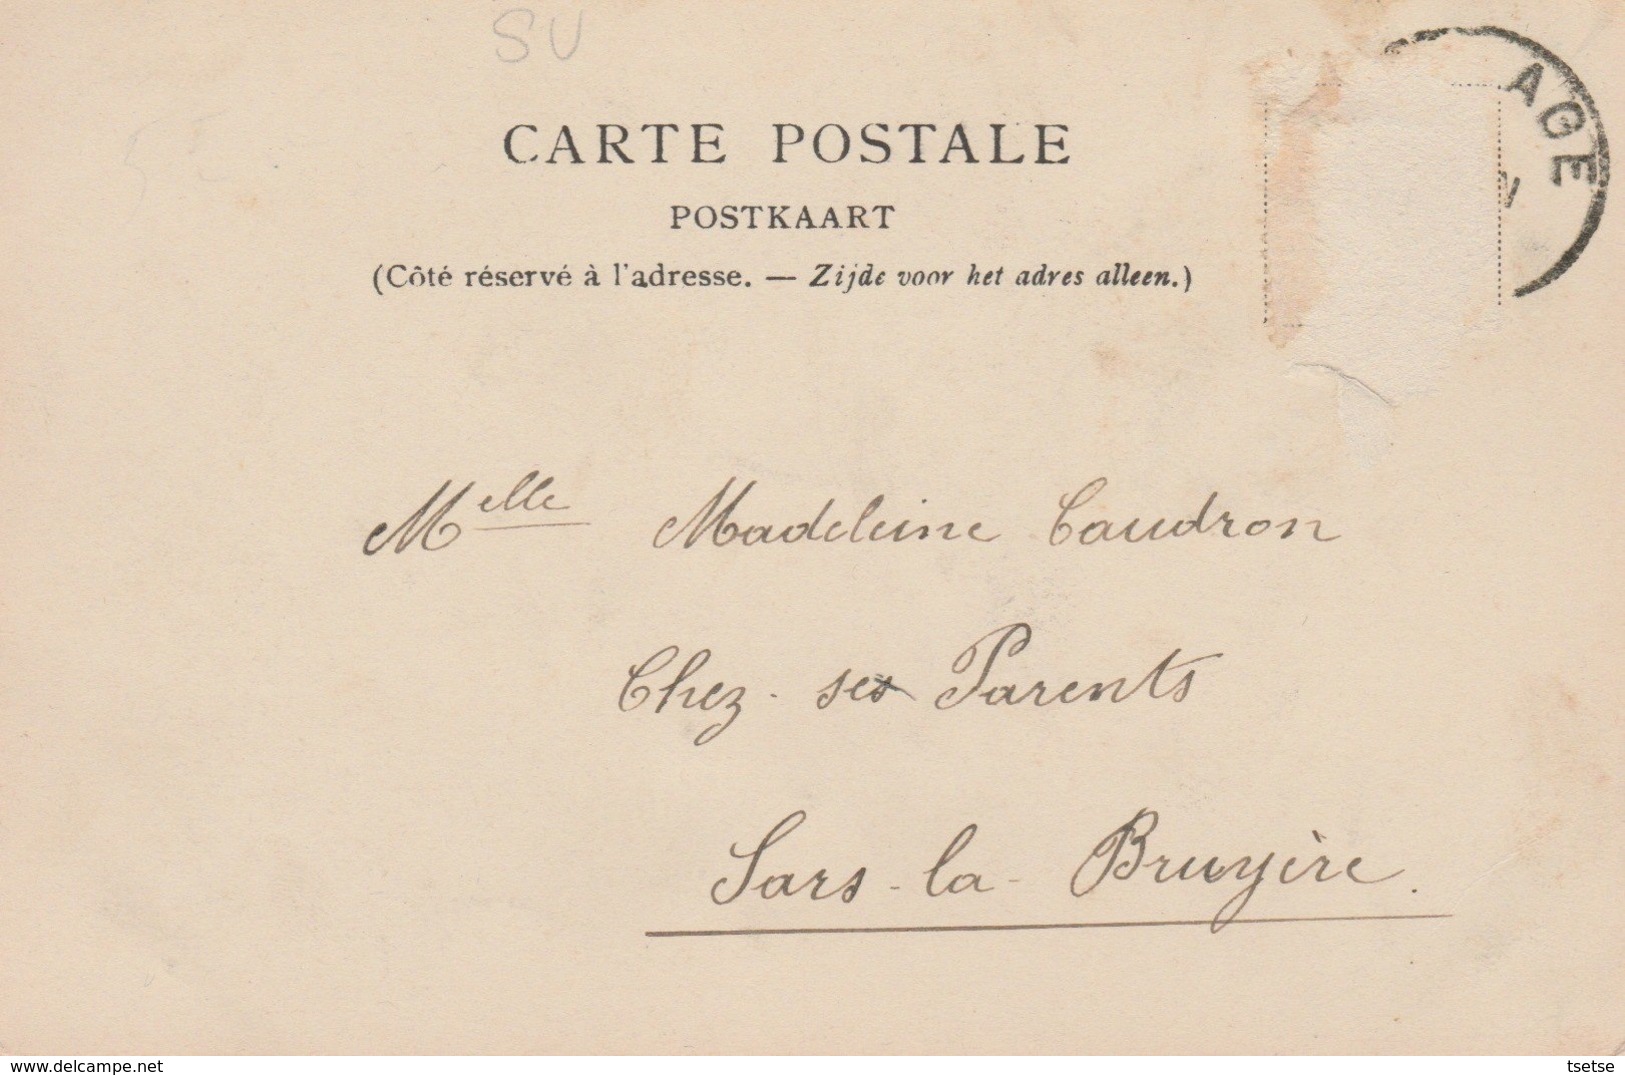 SU
CARTE POSTALE
POSTKAART
(Côté réservé à l'adresse. — Zijde voor het adres alleen.)
AGE
Melle Madeleine Caudron
Chez ses Parents
Sars-la-Bruyère.
www.delcampe.net
tsetse